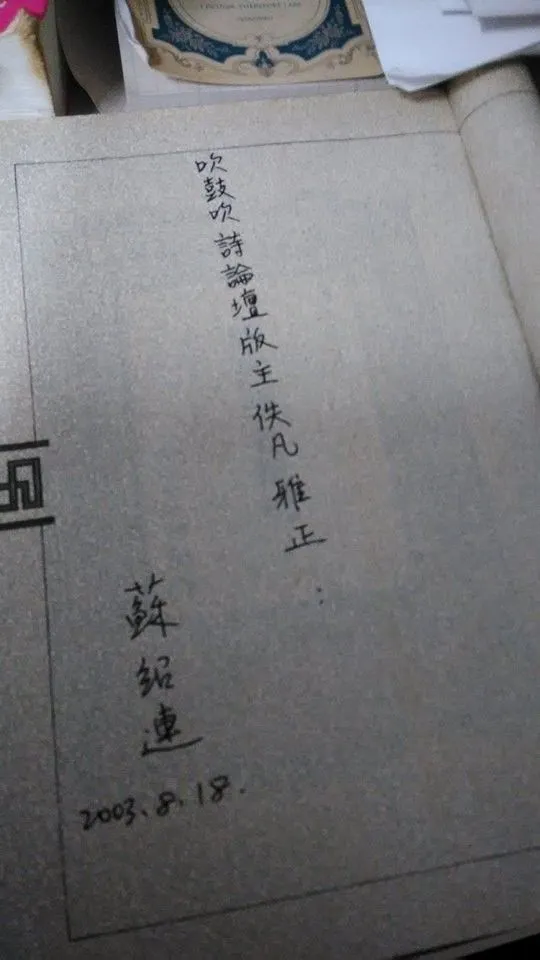 吹鼓吹詩論壇版主佚凡雅正：
蘇紹連
2003.8.18.